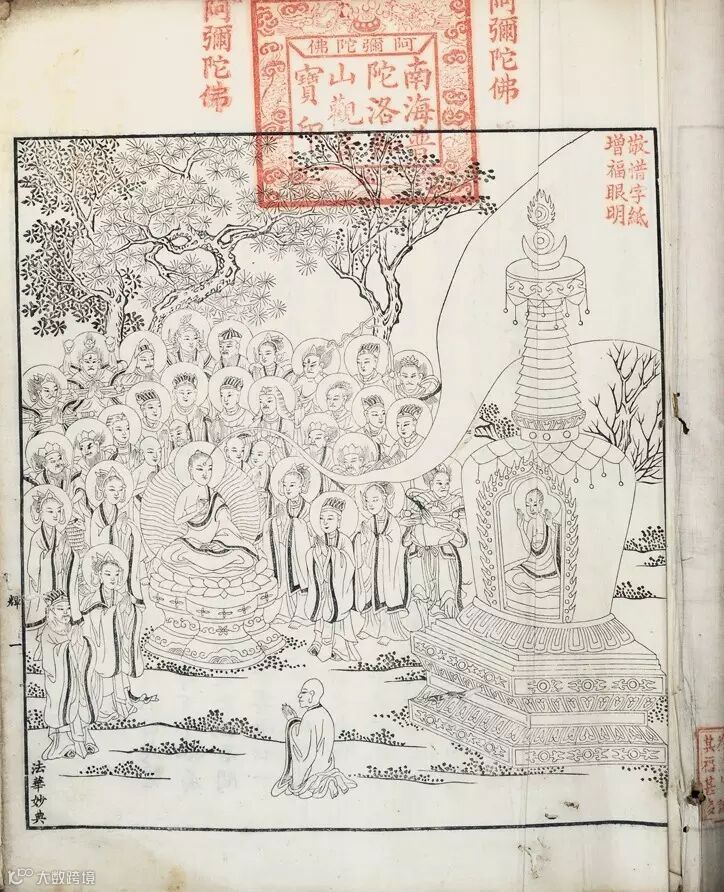 阿彌陀佛
阿彌陀佛
阿彌陀佛
南海普
陀洛
山觀
寶印
敬惜字紙
增福眼明
輝
一
法華妙典
其福甚
大数跨境